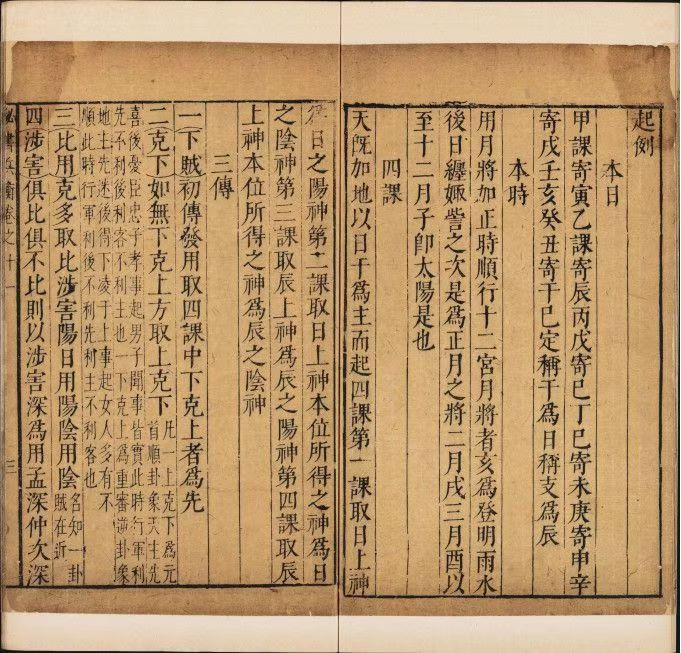 起例
本日
甲課寄寅乙課寄辰丙戊寄巳丁巳寄未庚寄申辛
寄戌壬亥癸丑寄干巳定稱干爲日稱支爲辰
本時
用月將加正時順行十二宮月將者亥爲登明雨水
後日纏娵訾之次是爲正月之將二月戌三月酉以
至十二月子卽太陽是也
四課
天旣加地以日干爲主而起四課第一課取日上神
日之陽神第二課取日上神本位所得之神爲日
之陰神第三課取辰上神爲辰之陽神第四課取辰
上神本位所得之神爲辰之陰神
三傳
一下賊初傳發用取四課中下克上者爲先
二克下如無下克上方取上克下
凡一上克下爲元
首順卦象天主先
喜後憂臣忠子孝事起男子聞事皆實此時行軍利
先不利後利客不利主也一下克上爲重審卦象
地主先迷後得下凌于上事起女人多有不
順此時行軍利後不利先利主不利客也
三比用克多取比涉害陽日用陽陰用陰
名知一卦
賊在近
四涉害俱比俱不比則以涉害深爲用孟深仲次深
書兵衡卷之十一
三